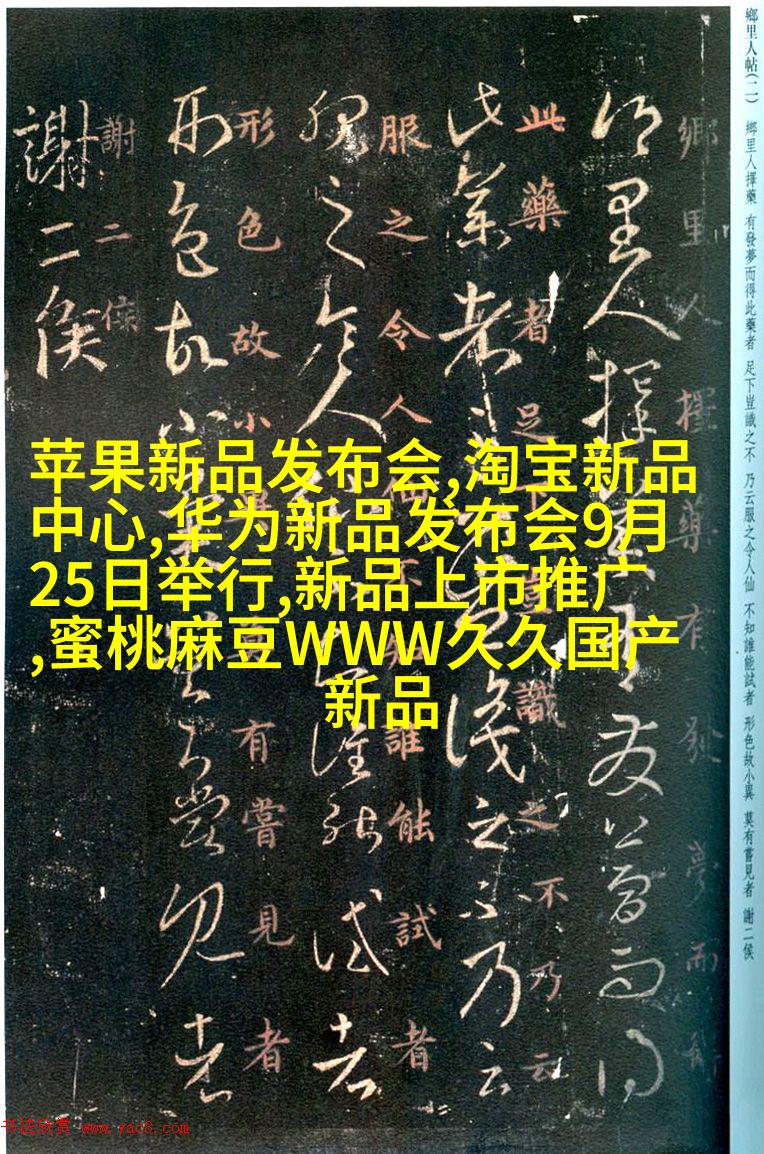 苹果新品发布会,淘宝新品
中心,华为新品发布会9月
25日举行,新品上市推广
,蜜桃麻豆WWW久久国产
新品
鄉里人帖(二) 鄉里人擇藥 有發夢而得此藥者 足下豈識之不 乃云服之令人仙 不知誰能試者 形色故小異 莫有嘗見者 謝二侯
鄉里人擇藥有發夢而得
此藥者足下豈識之不乃云
服之令人仙不知誰能試者
形色故小異莫有嘗見者
謝二侯
书法欣赏 www.yac8.com